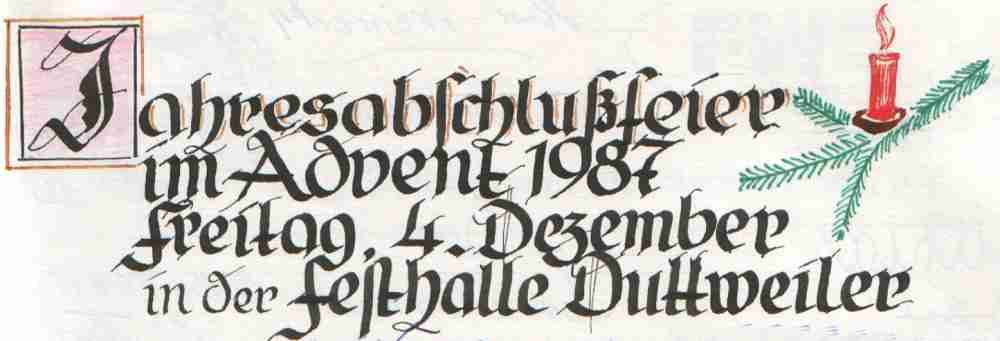 Jahresabschlußfeier
im Advent 1987
Freitag, 4. Dezember
in der Festhalle Duttweiler